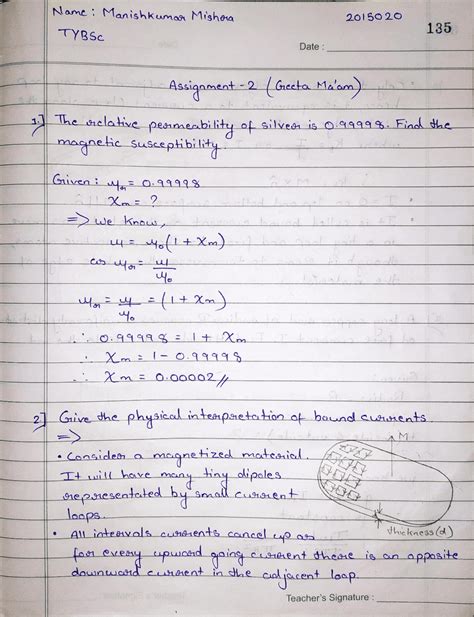 Name : Manishkumar Mishra 2015020
TYBSc
135
Date :
Assignment - 2 (Geeta Ma'am)
1.] The relative permeability of silver is 0.99998. Find the
magnetic susceptibility.
Given : μr = 0.99998
Xm = ?
=> we know,
μ = μ0 (1 + Xm)
as μr = μ/μ0
μr = μ/μ0 = (1 + Xm)
∴ 0.99998 = 1 + Xm
∴ Xm = 1 - 0.99998
∴ Xm = 0.00002//
2.] Give the physical interpretation of bound currents.
=>
• Consider a magnetized material.
It will have many tiny dipoles
representated by small current
loops.
M
thickness (d)
• All intervals currents cancel up as
for every upward going current there is an opposite
downward current in the adjacent loop.
Teacher's Signature :